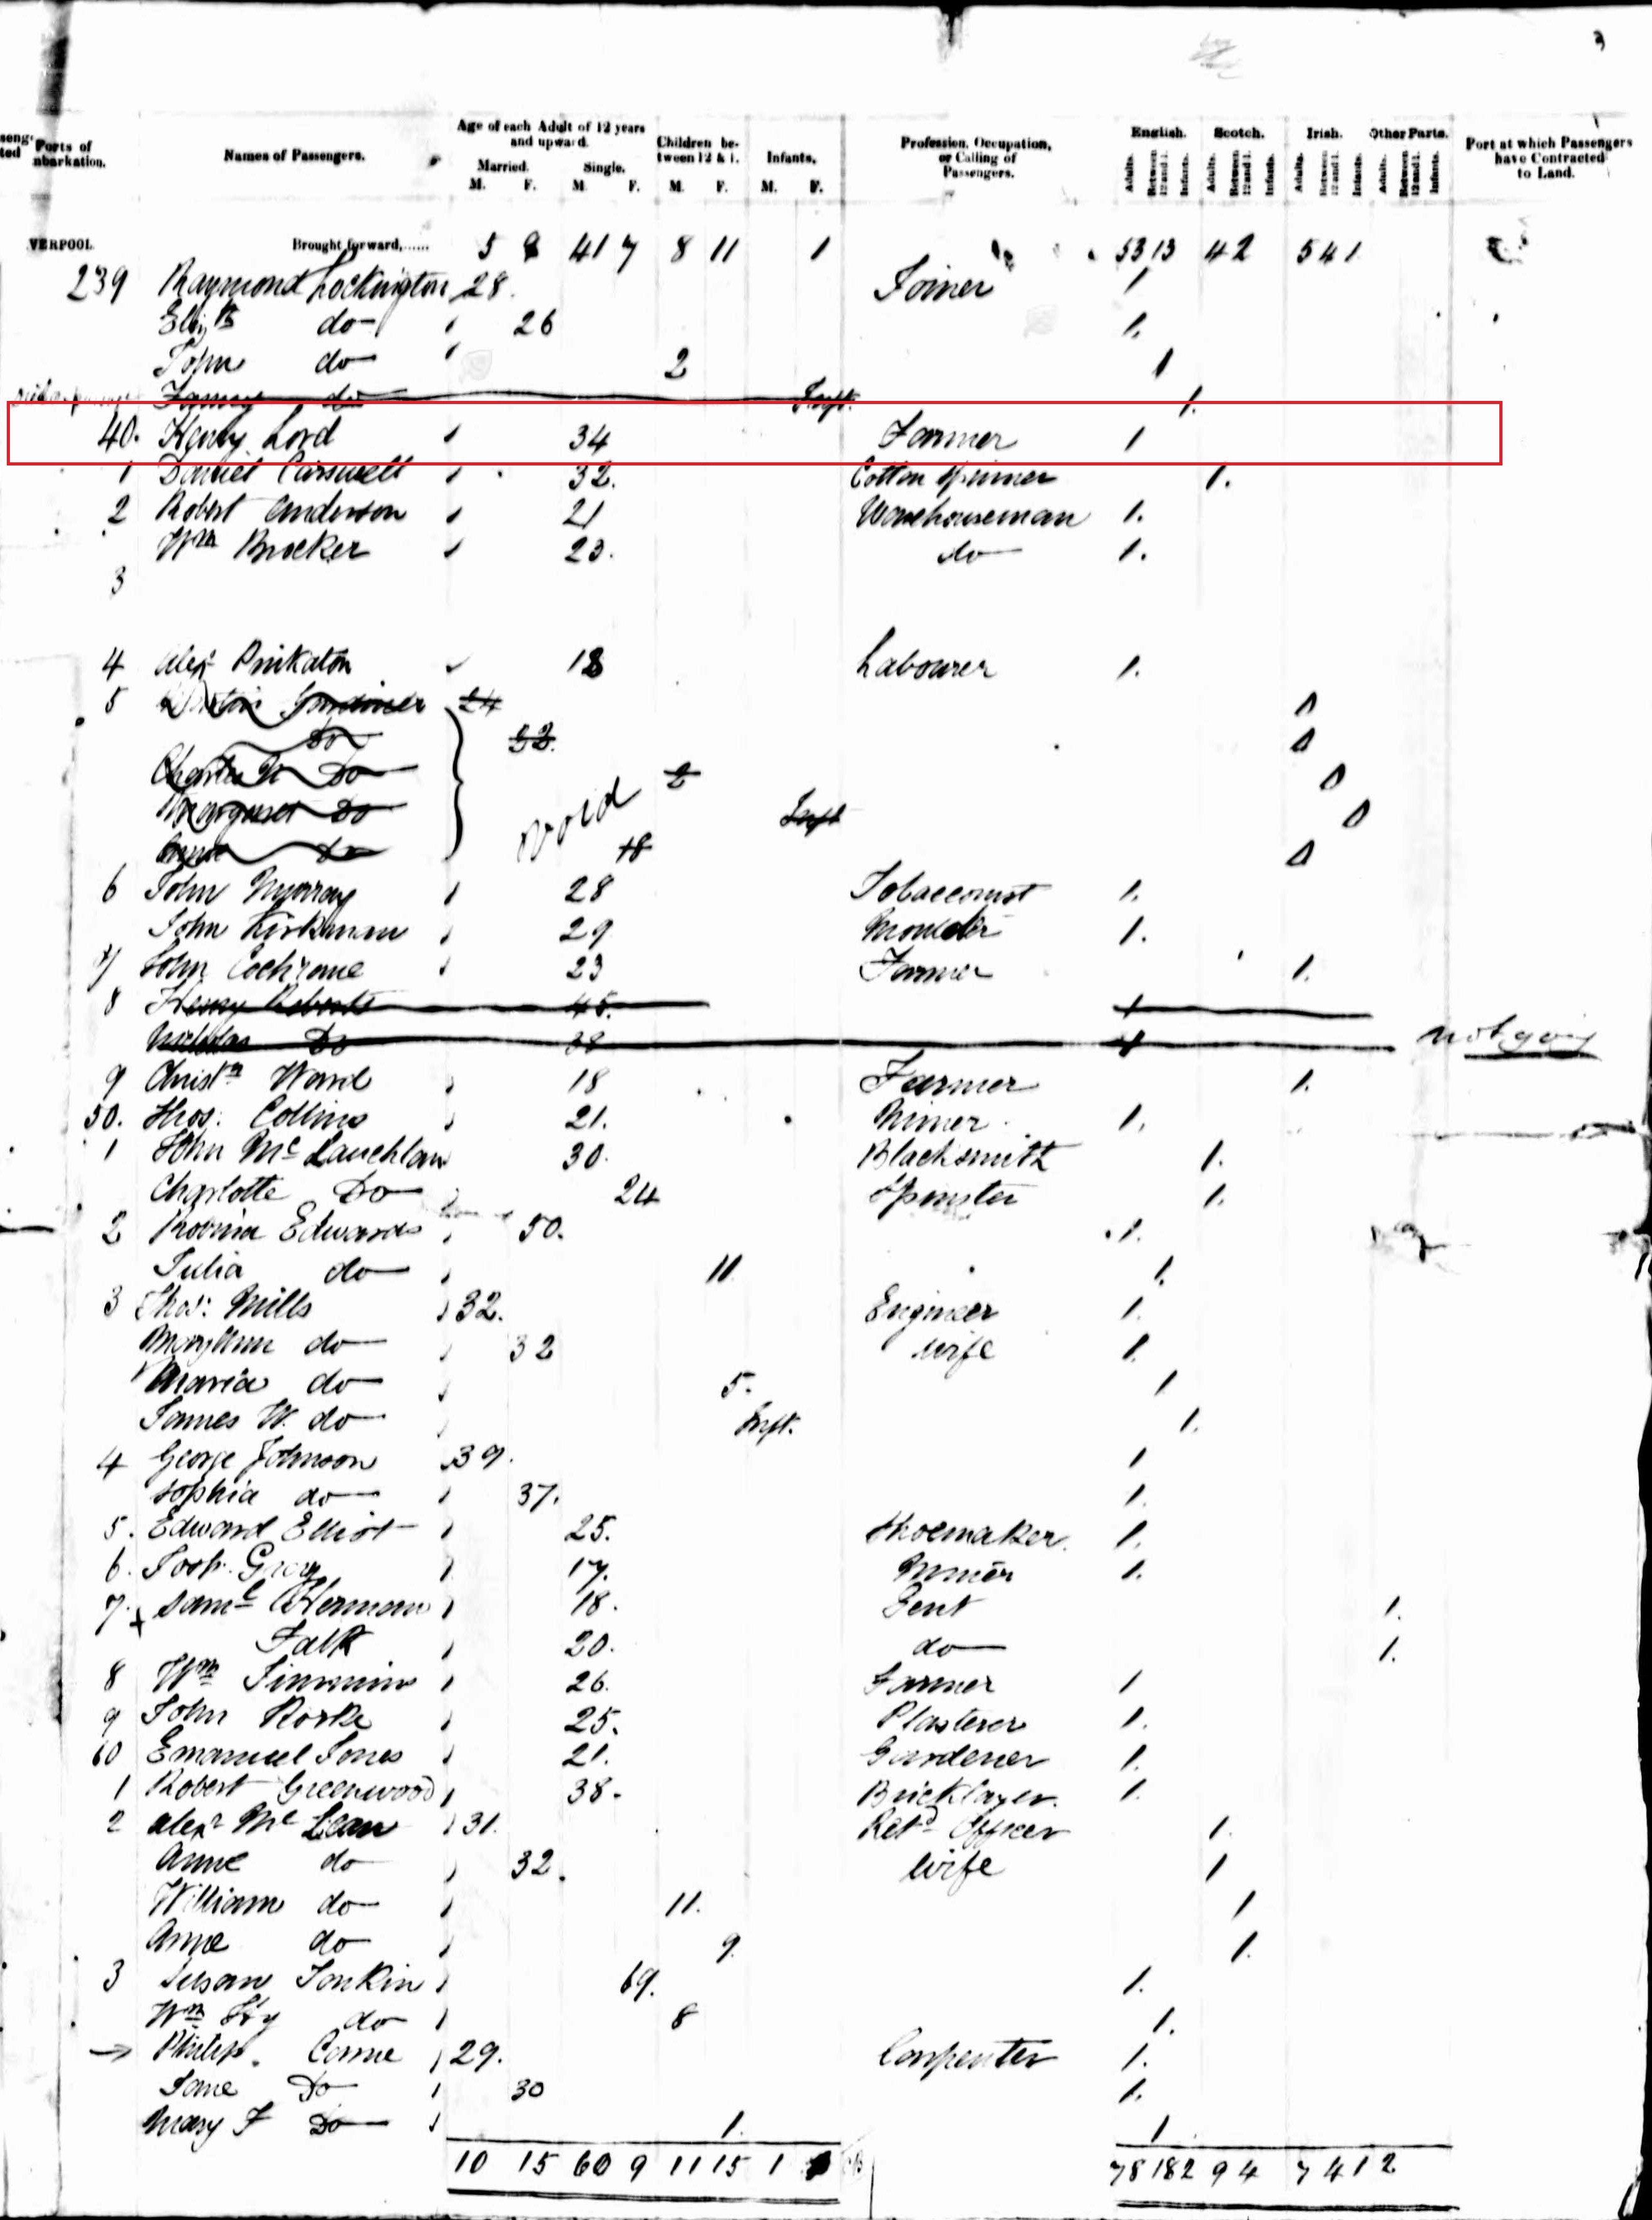 3
Ports of
Names of Passengers.
Age of each Adult of 12 years
and upward.
Married. Single.
M. F. M. F.
Children be-
tween 12 & 1.
M. F.
Infants.
M. F.
Profession, Occupation,
or Calling of
Passengers.
English. Scotch. Irish. Other Parts.
Adults. Between 12 and 1. Infants. Adults. Between 12 and 1. Infants. Adults. Between 12 and 1. Infants. Adults. Between 12 and 1. Infants.
Port at which Passengers
have Contracted
to Land.
VERPOOL Brought forward,...... 5 41 7 8 11 1 53 13 4 2 5 4 1
239 Raymond Lockington 28. Joiner 1
Elizth do 26 1.
John do 2 1
do Inft. 1.
40. Henry Lord 34 Farmer 1
1 Daniel Carswell 32. Cotton Spinner 1.
2 Robert Anderson 21 Warehouseman 1.
Wm Brocker 23. do 1.
3
4 Alexr Pinkaton 18 Labourer 1.
5 Gardiner 24
Do 32.
Charles Do 2
Margaret Do Inft
Do 18
void
6 John Murray 28 Tobacconist 1.
John Kirkman 29 Moulder 1.
7 John Cochrane 23 Farmer 1.
8 Henry Roberts 45. 1
Nicholas Do 38 1 not going
9 Christn Ward 18 Farmer 1.
50. Thos. Collins 21. Miner 1.
1 John McLauchlan 30. Blacksmith 1.
Charlotte Do 24 Spinster 1.
2 Edwards 50. 1.
Julia do 11 1.
3 Thos. Mills 32. Engineer 1.
MaryAnn do 32 wife 1.
Maria do 5. 1
James W. do Inft. 1.
4 George Johnson 39. 1
Sophia do 37. 1.
5. Edward Elliot 25. Shoemaker. 1.
6. Josh. 17. Miner 1.
7. x Saml Herman 18. Gent 1.
Falk 20. do 1.
8 Wm Timmins 26. Farmer 1
9 John Rorke 25. Plasterer 1.
60 Emanuel Jones 21. Gardener 1.
1 Robert Greenwood 38. Bricklayer. 1.
2 Alexr McLean 31. Retd Officer 1.
Anne do 32. Wife 1
William do 11. 1
Anne do 9. 1.
3 Susan Tonkin 69. 1.
Wm do 8 1.
→ Philip. Corrie 29. Carpenter 1.
Jane Do 30 1.
Mary F Do 1. 1
10 15 60 9 11 15 1 78 18 2 9 4 7 4 1 2